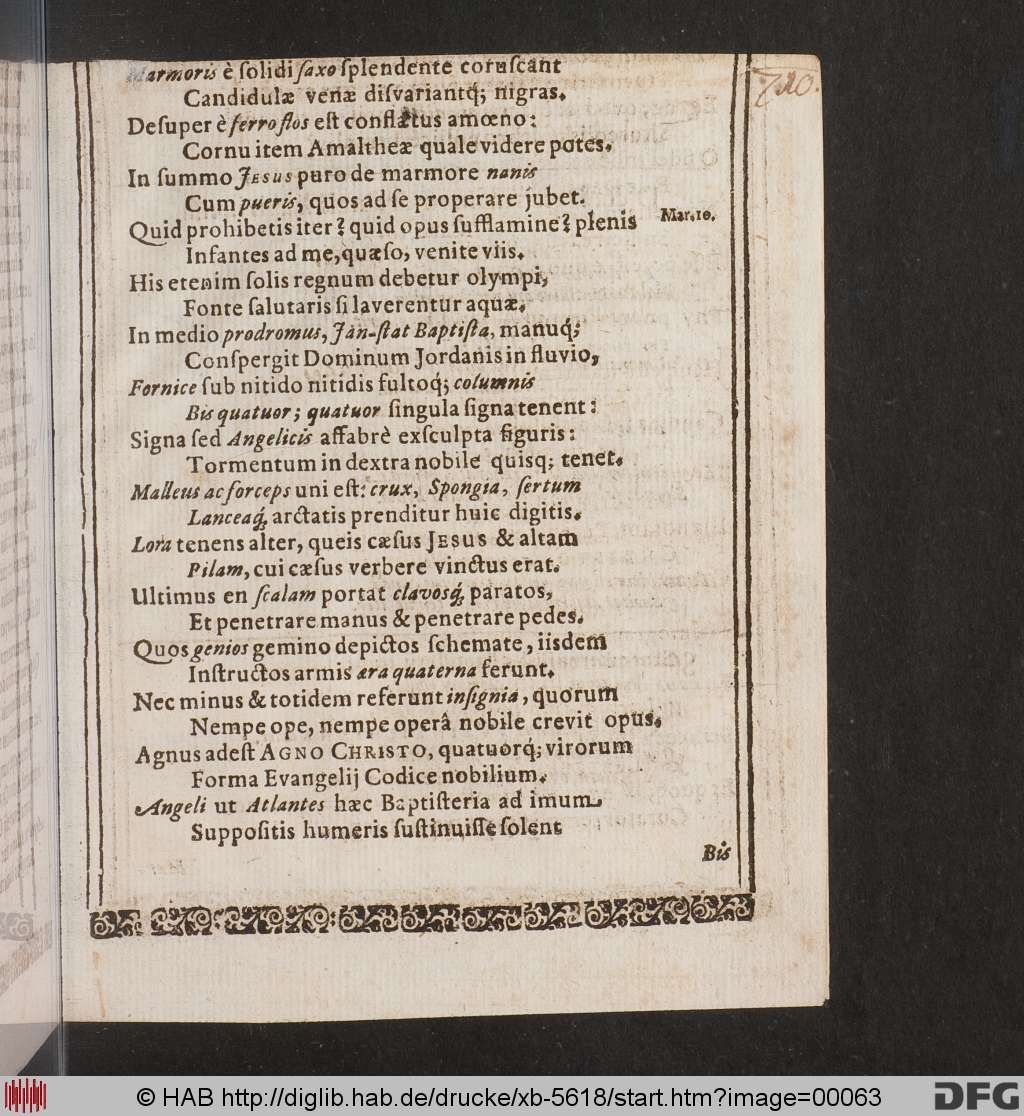 Marmoris è ſolidi ſaxo ſplendente coruſcant
Candidulæ venæ diſvariantq́; nigras.
Deſuper è ferro flos eſt conflatus amœno:
Cornu item Amaltheæ quale videre potes.
In ſummo Jesus puro de marmore nanis
Cum pueris, quos ad ſe properare jubet.
Quid prohibetis iter? quid opus ſufflamine? plenis
Mar. 10.
Infantes ad me, quæſo, venite viis.
His etenim ſolis regnum debetur olympi,
Fonte ſalutaris ſi laverentur aquæ.
In medio prodromus, Jàn-ſtat Baptiſta, manuq́;
Conſpergit Dominum Jordanis in fluvio,
Fornice ſub nitido nitidis fultoq́; columnis
Bis quatuor; quatuor ſingula ſigna tenent:
Signa ſed Angelicis affabrè exſculpta figuris:
Tormentum in dextra nobile quisq; tenet.
Malleus ac forceps uni eſt: crux, Spongia, ſertum
Lanceaq́; arctatis prenditur huic digitis.
Lora tenens alter, queis cæſus JESUS & altam
Pilam, cui cæſus verbere vinctus erat.
Ultimus en ſcalam portat clavosq́; paratos,
Et penetrare manus & penetrare pedes.
Quos genios gemino depictos ſchemate, iisdem
Inſtructos armis æra quaterna ferunt.
Nec minus & totidem referunt inſignia, quorum
Nempe ope, nempe operâ nobile crevit opus.
Agnus adeſt AGNO CHRISTO, quatuorq́; virorum
Forma Evangelij Codice nobilium.
Angeli ut Atlantes hæc Baptiſteria ad imum
Suppoſitis humeris ſuſtinuiſſe ſolent
Bis
© HAB http://diglib.hab.de/drucke/xb-5618/start.htm?image=00063
DFG